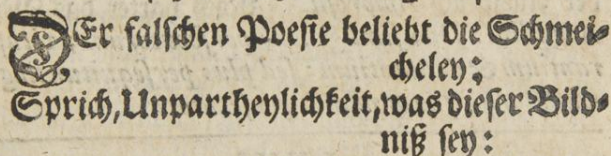 DEr falschen Poesie beliebt die Schmei-
cheley;
Sprich, Unpartheylichkeit, was dieser Bild-
niß sey: